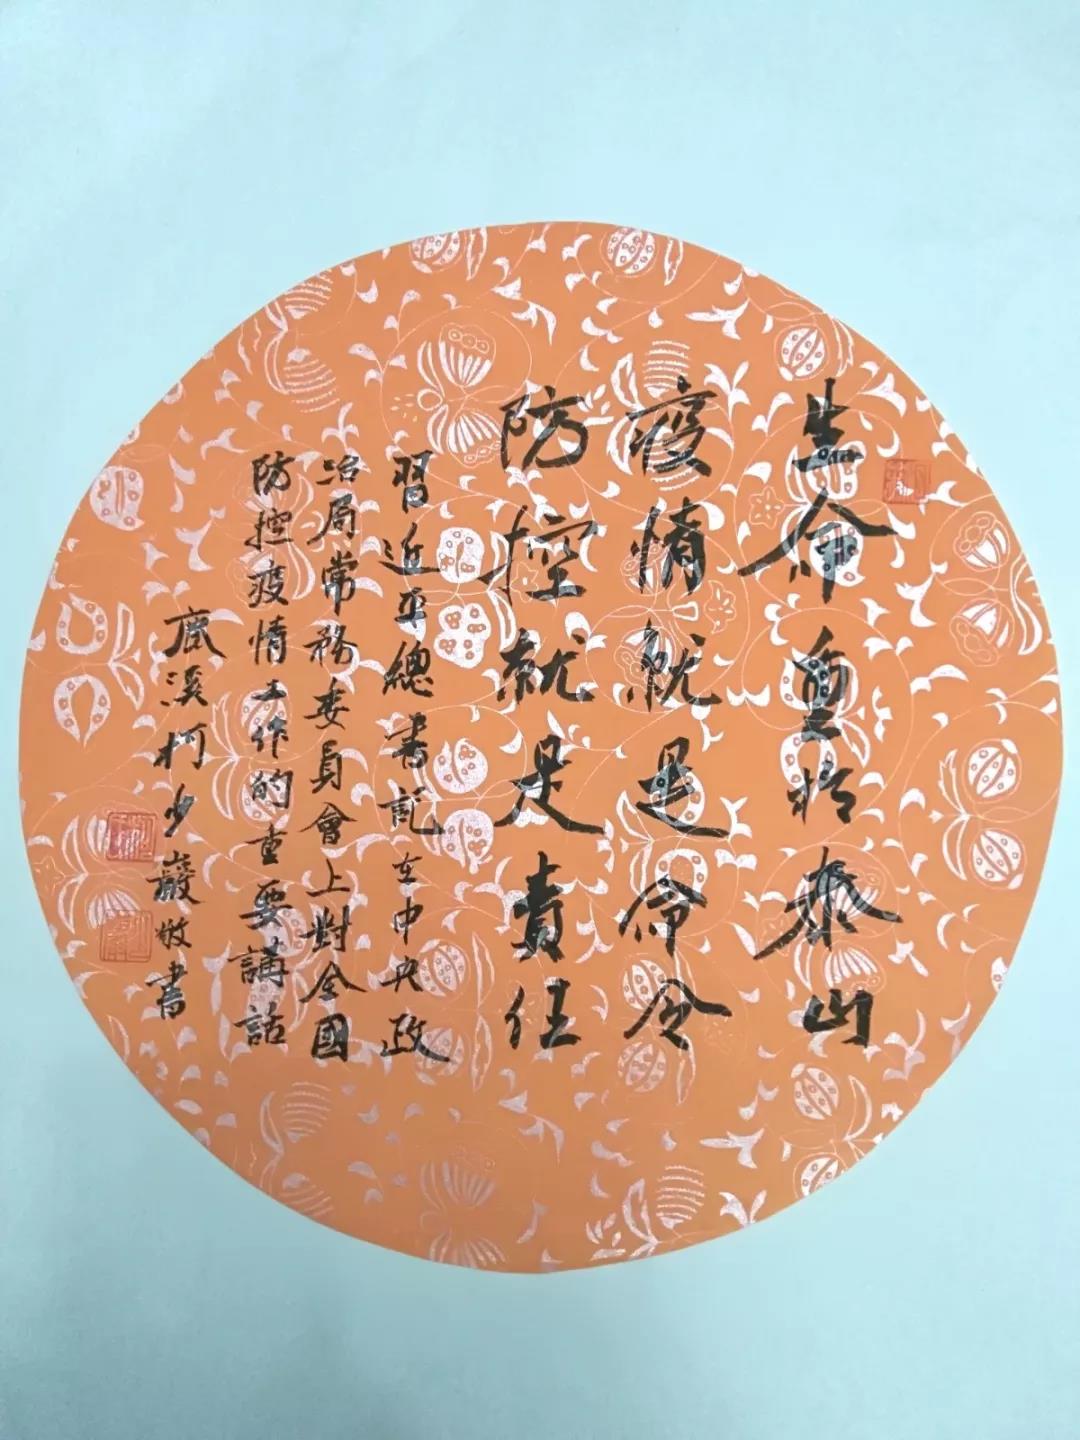 生命重於泰山
疫情就是命令
防控就是責任
習近平總書記在中央政
治局常務委員會上對全國
防控疫情工作的重要講話
溪柯少巖敬書